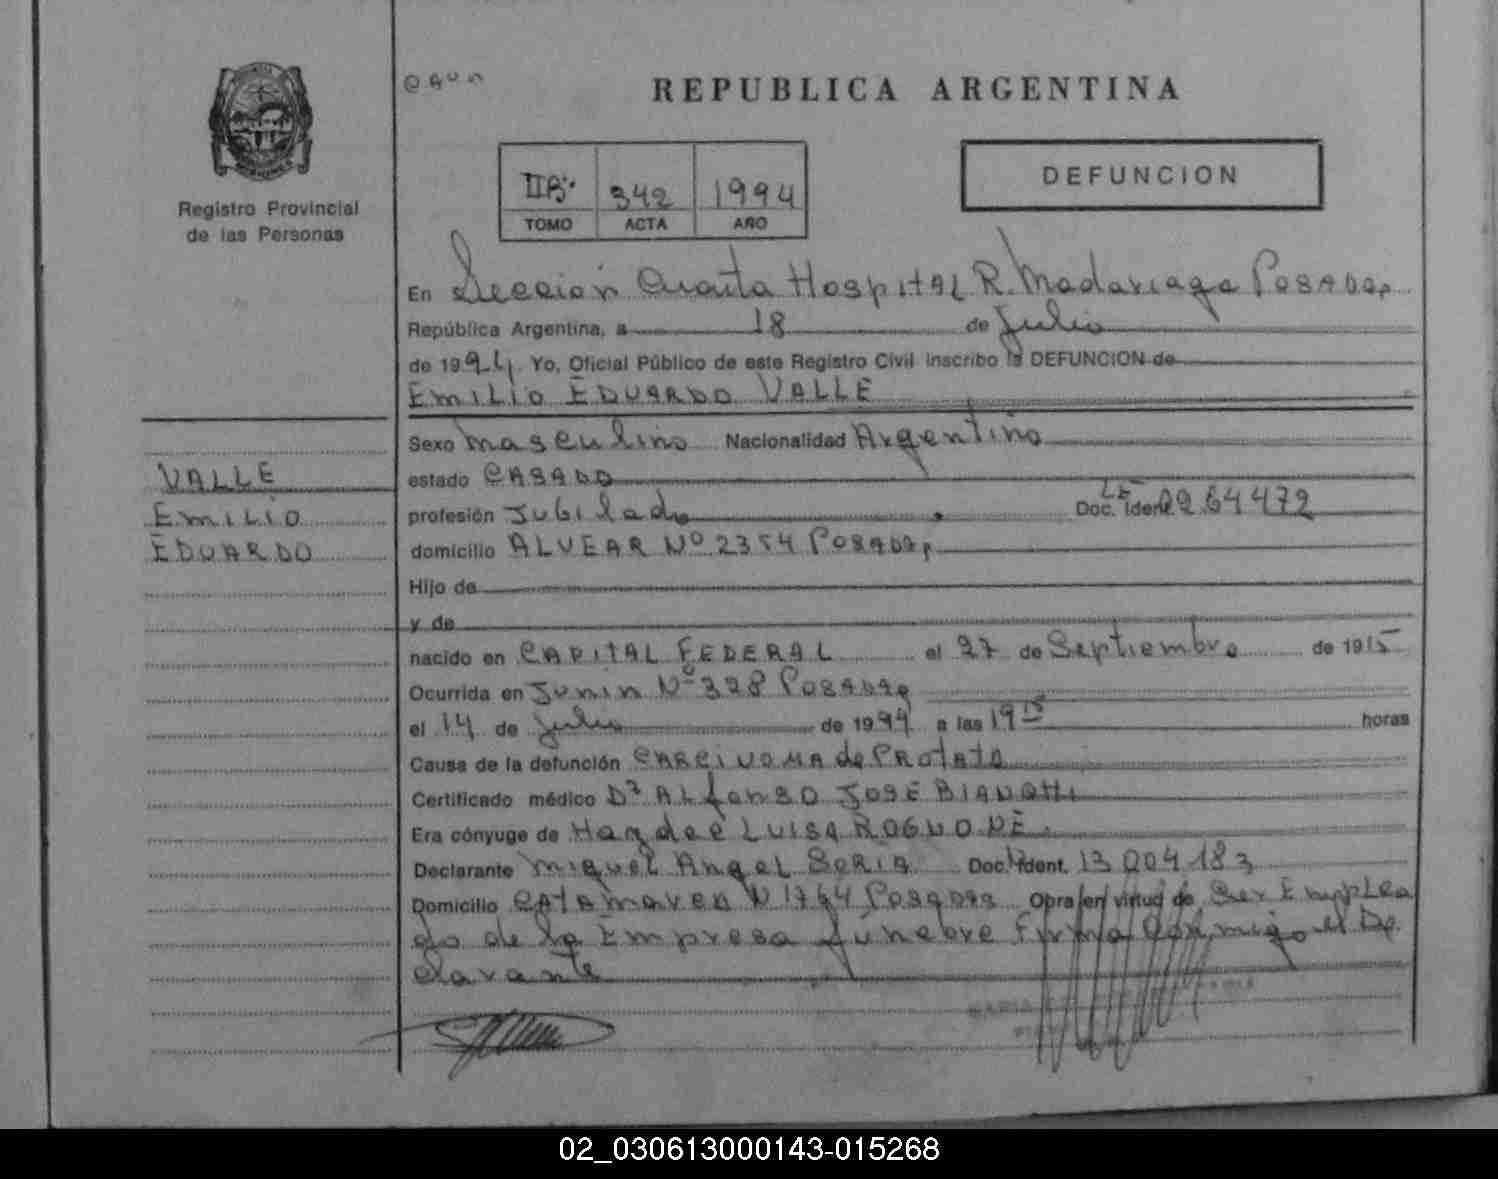 REPUBLICA ARGENTINA
Registro Provincial
de las Personas
IIBis 342 1994
TOMO ACTA AÑO
DEFUNCION
En Sección Cuarta Hospital R. Madariaga Posadas
República Argentina, a 18 de Julio
de 1994. Yo, Oficial Público de este Registro Civil inscribo la DEFUNCION de
EMILIO EDUARDO VALLE
VALLE
EMILIO
EDUARDO
Sexo Masculino Nacionalidad Argentino
estado CASADO
profesión Jubilado Doc. Ident. LE 264472
domicilio ALVEAR Nº 2354 POSADAS
Hijo de
y de
nacido en CAPITAL FEDERAL el 27 de Septiembre de 1915
Ocurrida en Junin Nº 328 POSADAS
el 14 de Julio de 1994 a las 19 15 horas
Causa de la defunción CARCINOMA de PROTATA
Certificado médico Dr ALfonso JOSE BIANCHI
Era cónyuge de Haydee LUISA ROGNONE.
Declarante Miguel Angel SORIA Doc. Ident. 13 004 183
Domicilio Nº 1764 POSADAS Obra en virtud de Ser Emplea
do de la Empresa fúnebre Firma Conmigo el De
clarante
02_030613000143-015268